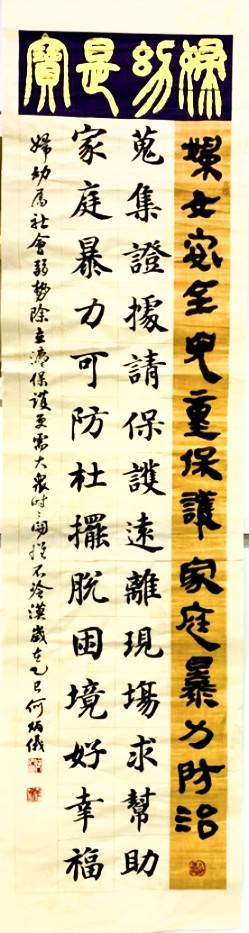 婦幼是寶
婦女安全兒童保護家庭暴力防治
蒐集證據請保護遠離現場求幫助
家庭暴力可防杜擺脫困境好幸福
婦幼屬社會弱勢除立法保護更需大眾時時關懷不冷漠歲在乙巳何炳儀